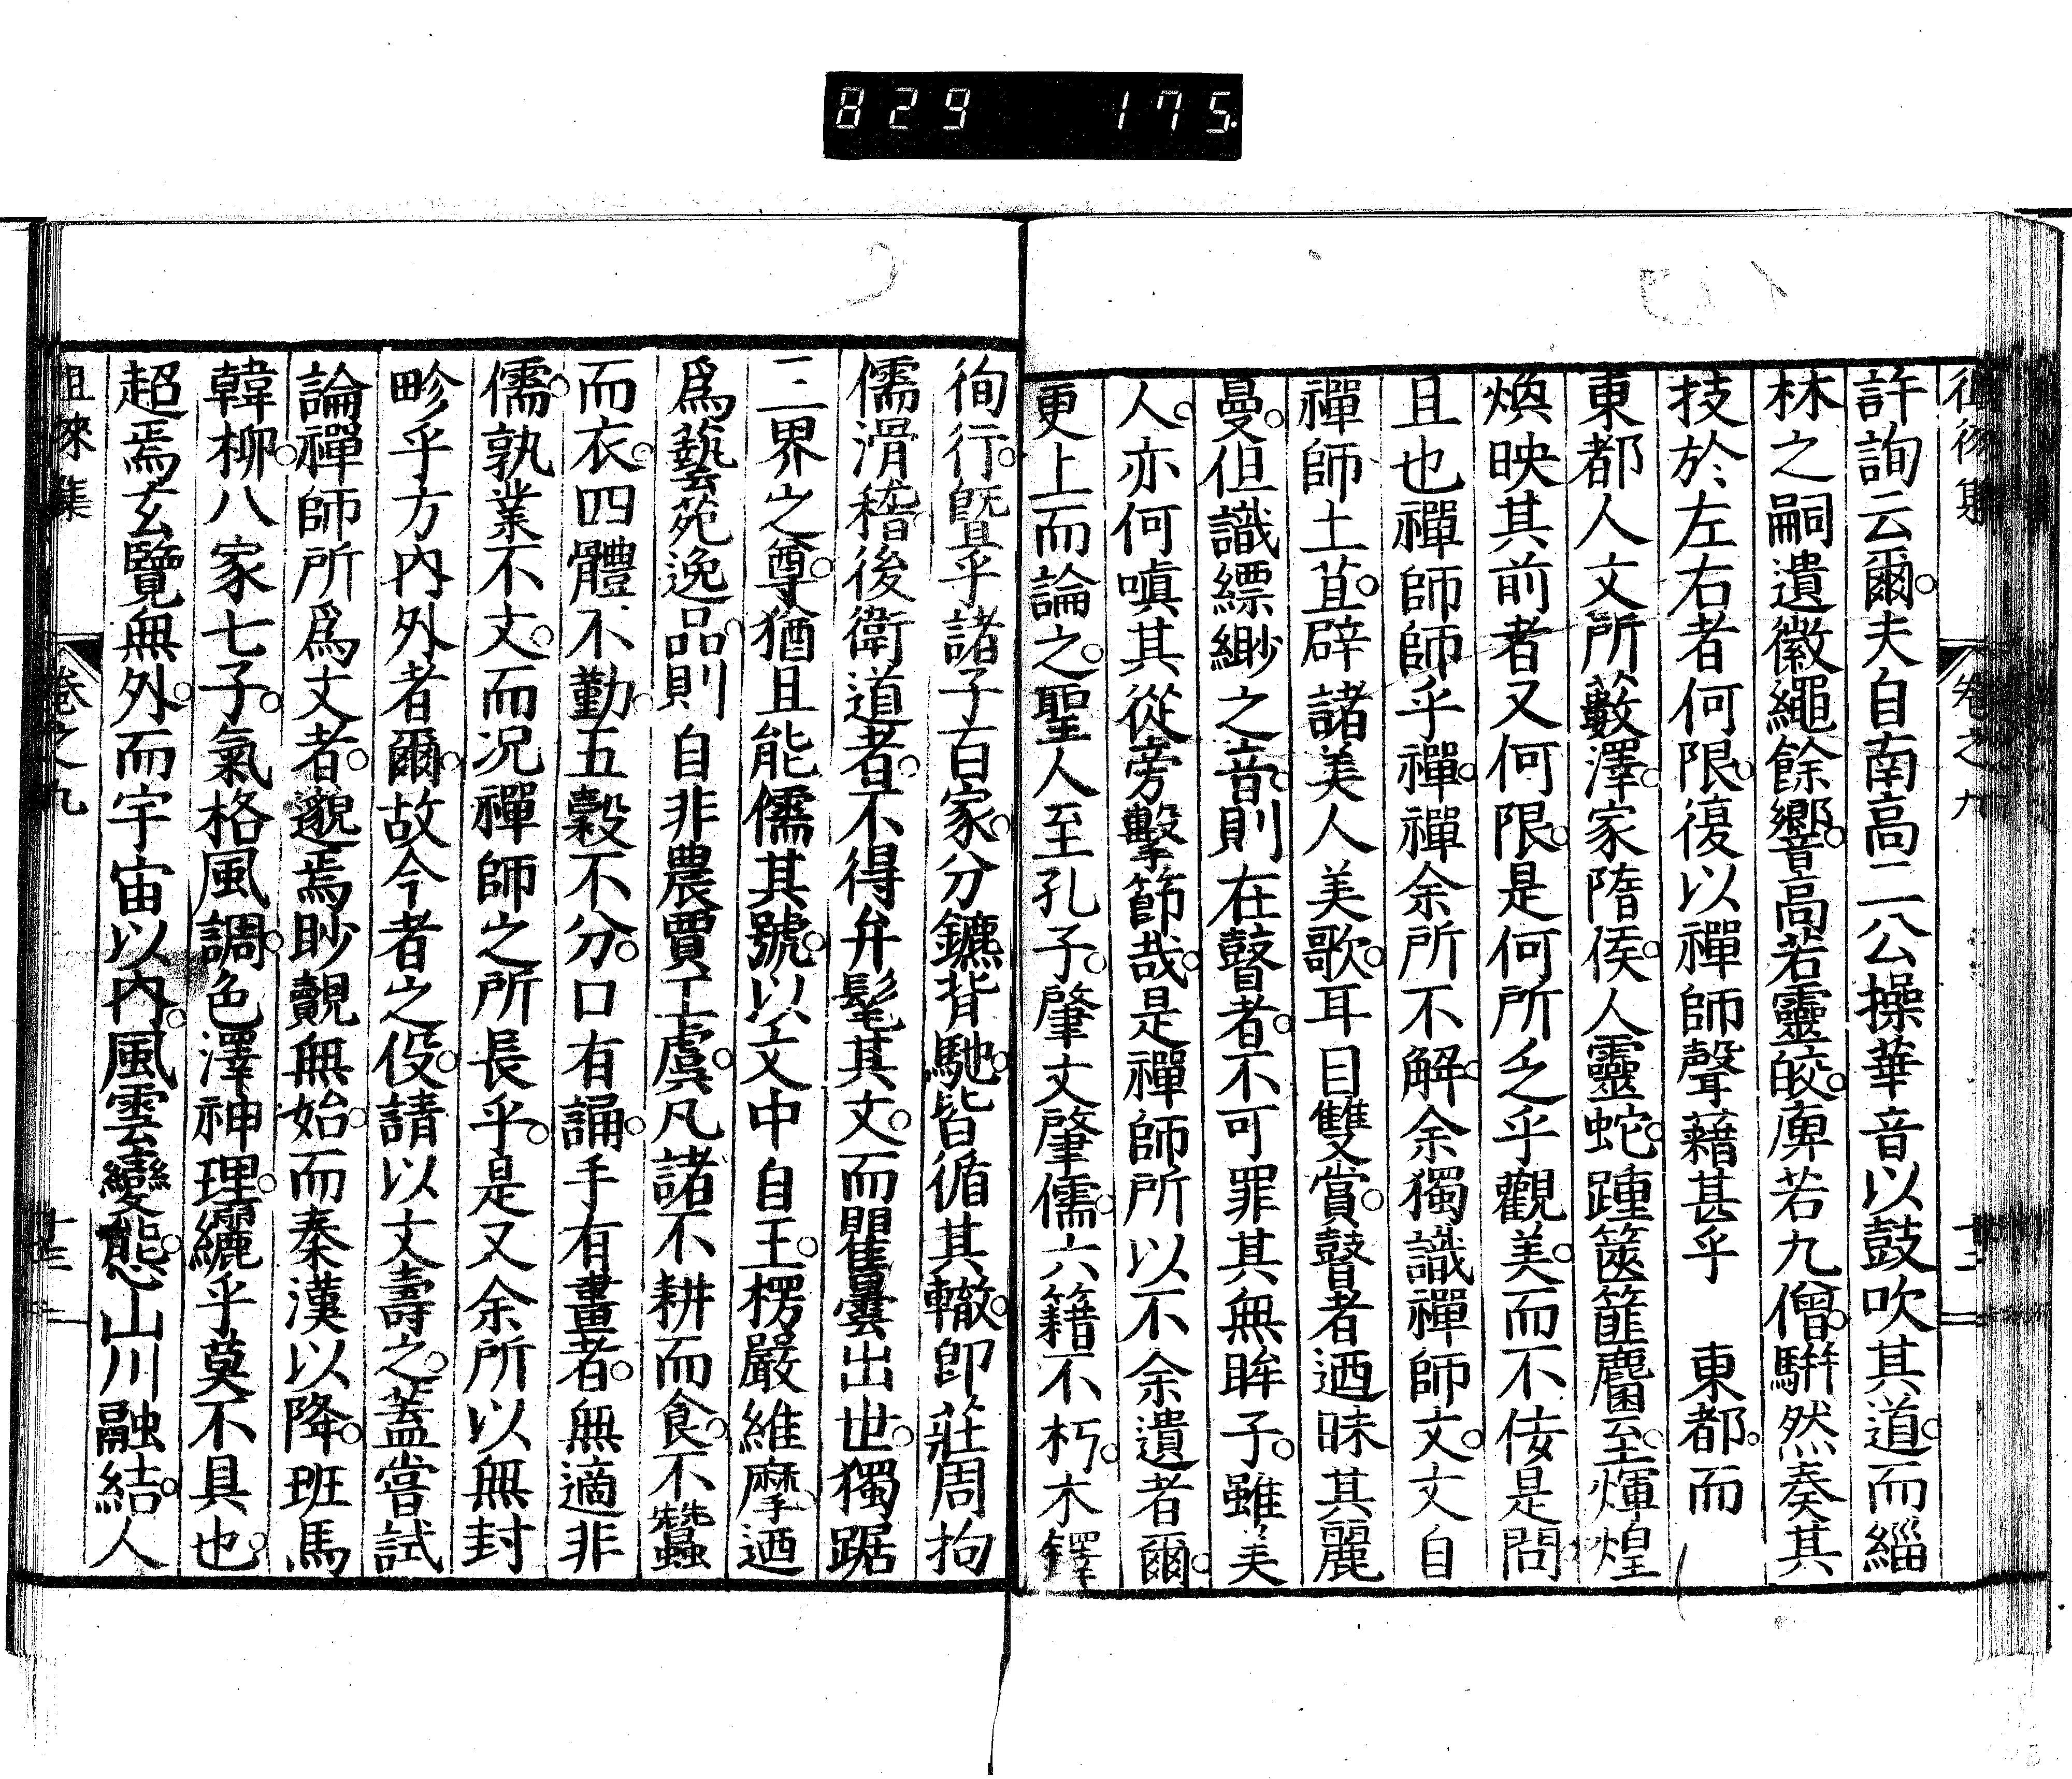 829 175.
許詢云爾。夫自南高二公操華音以鼓吹其道。而緇
林之嗣遺徽繩餘響。高若靈皎。庳若九僧。駢然奏其
技於左右者何限。復以禪師聲藉甚乎 東都。而
東都人文所藪澤。家隋侯。人靈蛇。踵篋篚麕至。煇煌
煥映其前者又何限。是何所乏乎觀美。而不佞是問
且也禪師師乎禪。禪余所不解。余獨識禪師文。文自
禪師土苴。辟諸美人美歌。耳目雙賞。瞽者迺昧其麗
曼。但識縹緲之音。則在瞽者。不可罪其無眸子。雖美
人。亦何嗔其從旁擊節哉。是禪師所以不余遺者爾。
更上而論之。聖人至孔子。肇文肇儒。六籍不朽。木鐸
徇行。曁乎諸子百家。分鑣背馳。皆循其轍。卽莊周拘
儒滑稽。後衛道者。不得弁髦其文。而瞿曇出世。獨踞
三界之尊。猶且能儒其號。以文中自王。楞嚴維摩。迺
爲藝苑逸品。則自非農賈工虞。凡諸不耕而食。不蠶
而衣。四體不勤。五穀不分。口有誦。手有畫者。無適非
儒。孰業不文。而况禪師之所長乎。是又余所以無封
畛乎方內外者爾。故今者之役。請以文壽之。蓋嘗試
論禪師所爲文者。邈焉眇覿無始。而秦漢以降。班馬
韓柳。八家七子。氣格風調。色澤神理。纚纚乎莫不具也。
超焉玄覽無外。而宇宙以內。風雲變態。山川融結。人
徂徠集 卷之九